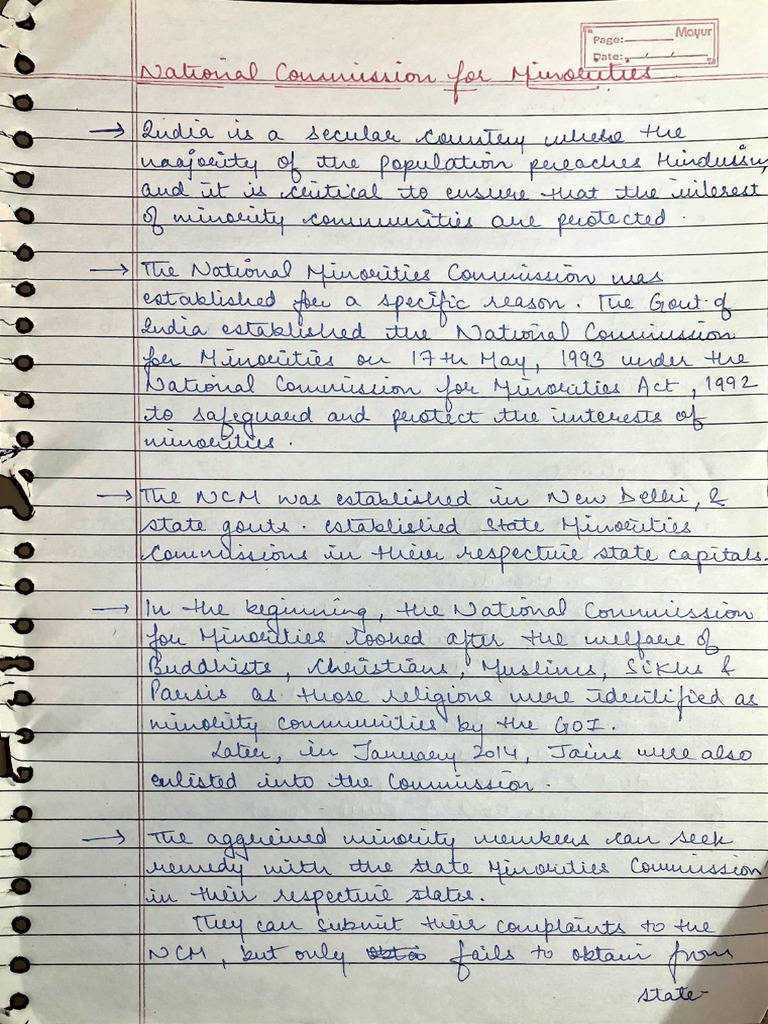 Mayur
Page:
Date:
National Commission for Minorities
→ India is a secular country where the
maajority of the population preaches Hinduism,
and it is critical to ensure that the interest
of minority communities are protected.
→ The National Minorities Commission was
established for a specific reason. The Govt. of
India established the National Commission
for Minorities on 17th May, 1993 under the
National Commission for Minorities Act, 1992
to safeguard and protect the interests of
minorities.
→ The NCM was established in New Delhi, &
state govts. established State Minorities
Commissions in their respective state capitals.
→ In the beginning, the National Commission
for Minorities looked after the welfare of
Buddhists, Christians, Muslims, Sikhs &
Parsis as those religions were identified as
minority communities by the GOI.
Later, in January 2014, Jains were also
enlisted into the Commission.
→ The aggreived minority members can seek
remedy with the State Minorities Commission
in their respective states.
They can submit their complaints to the
NCM, but only fails to obtain from
state